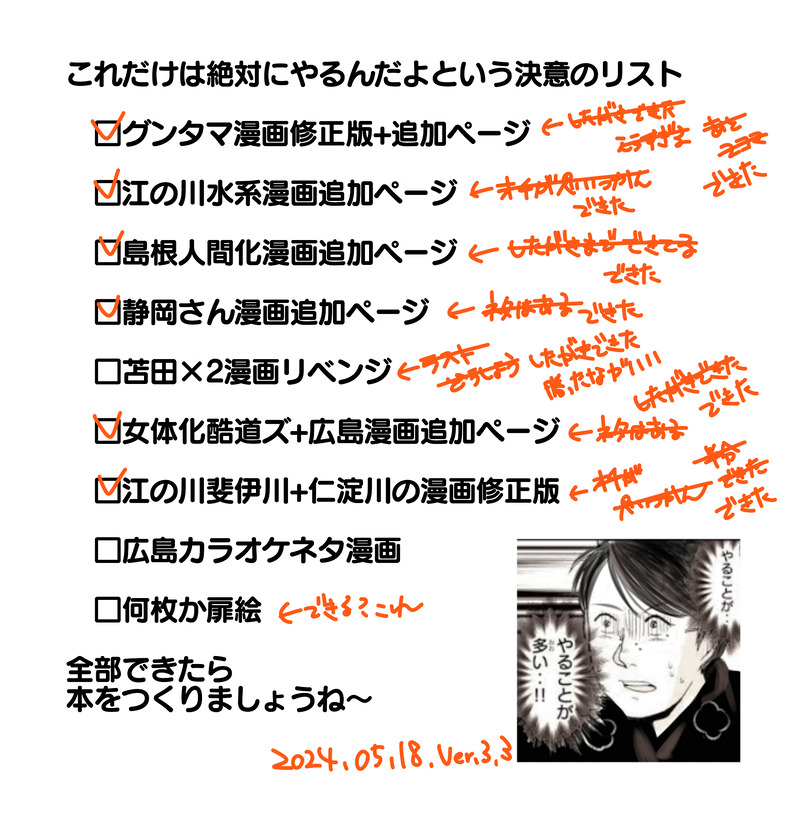 これだけは絶対にやるんだよという決意のリスト
☑グンタマ漫画修正版+追加ページ ←したがきできた あと
できた
☑江の川水系漫画追加ページ ←
できた
☑島根人間化漫画追加ページ ←したがきまでできてる
できた
☑静岡さん漫画追加ページ ←ネタはある できた
□苫田×2漫画リベンジ ←ラスト どうしよう したがきできた
勝ったなガハハ
☑女体化酷道ズ+広島漫画追加ページ ←ネタはある したがきできた できた
☑江の川斐伊川+仁淀川の漫画修正版 ←オチが 半分 できた
できた
□広島カラオケネタ漫画
□何枚か扉絵 ←できる?これ
全部できたら
本をつくりましょうね〜
やることが‥
やることが
多い‥!!
おお
2024.05.18.Ver.3.3